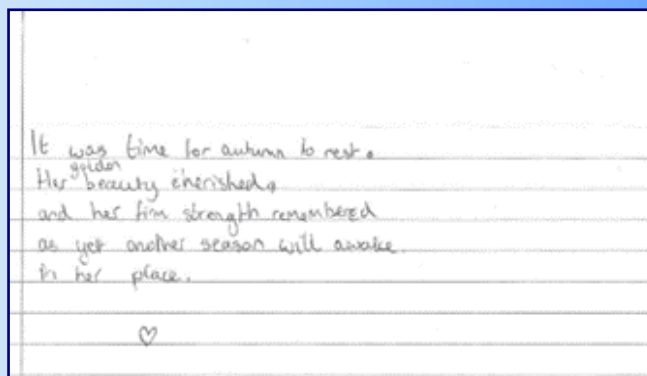 It was time for autumn to rest.
Her golden beauty cherished,
and her firm strength remembered
as yet another season will awake
in her place.